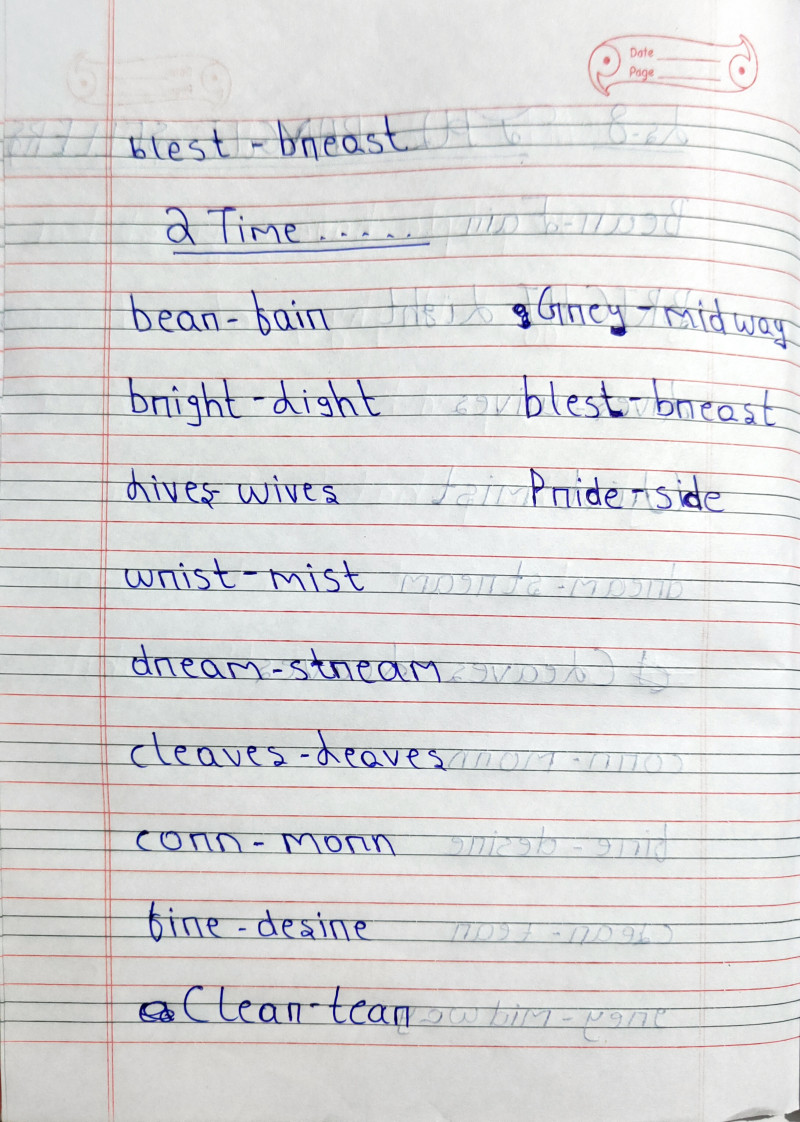 Date
Page
blest - breast
2 Time .....
bear - fair Grey - midway
bright - light blest - breast
lives - wives Pride - side
wrist - mist
dream - stream
cleaves - leaves
corn - morn
fire - desire
Clear - tear